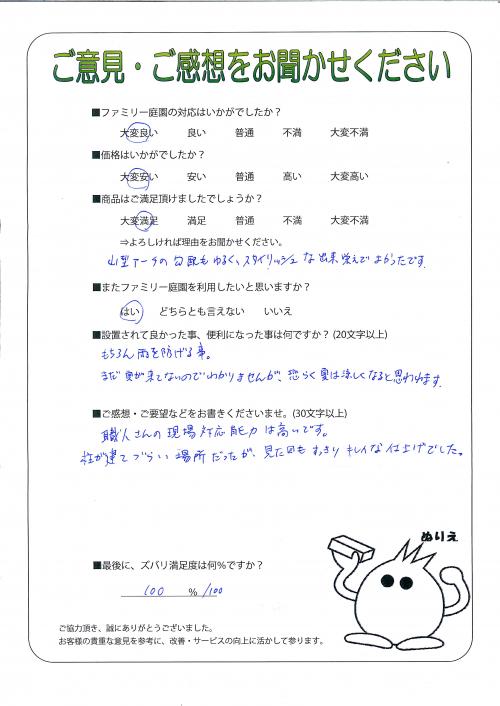 ご意見・ご感想をお聞かせください
■ファミリー庭園の対応はいかがでしたか？
大変良い 良い 普通 不満 大変不満
■価格はいかがでしたか？
大変安い 安い 普通 高い 大変高い
■商品はご満足頂けましたでしょうか？
大変満足 満足 普通 不満 大変不満
⇒よろしければ理由をお聞かせください。
山型アーチの勾配もゆるく、スタイリッシュな出来栄えでよかったです。
■またファミリー庭園を利用したいと思いますか？
はい どちらとも言えない いいえ
■設置されて良かった事、便利になった事は何ですか？(20文字以上)
もちろん雨を防げる事。
まだ夏が来てないのでわかりませんが、恐らく夏は涼しくなると思われます。
■ご感想・ご要望などをお書きくださいませ。(30文字以上)
職人さんの現場対応能力は高いです。
柱が建てづらい場所だったが、見た目もすっきりキレイな仕上げでした。
ぬりえ
■最後に、ズバリ満足度は何％ですか？
100 ％/100
ご協力頂き、誠にありがとうございました。
お客様の貴重な意見を参考に、改善・サービスの向上に活かして参ります。